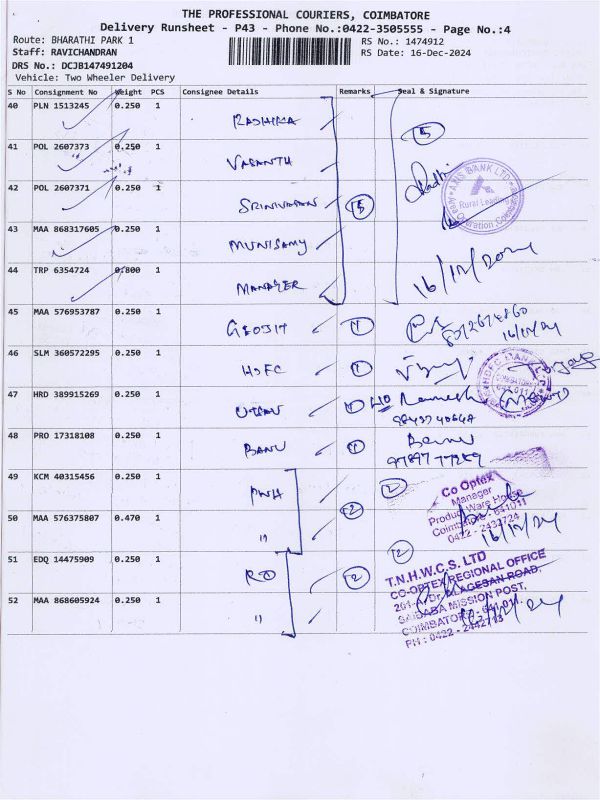 THE PROFESSIONAL COURIERS, COIMBATORE
Delivery Runsheet - P43 - Phone No.:0422-3505555 - Page No.:4
Route: BHARATHI PARK 1
RS No.: 1474912
Staff: RAVICHANDRAN
RS Date: 16-Dec-2024
DRS No.: DCJB147491204
Vehicle: Two Wheeler Delivery
S No Consignment No Weight PCS Consignee Details Remarks Seal & Signature
40 PLN 1513245 0.250 1 RADHIKA
5
41 POL 2607373 0.250 1 VASANTH
AXIS BANK LTD
Rural Lending
42 POL 2607371 0.250 1 SRINIVASAN 5
43 MAA 868317605 0.250 1 MUNISAMY
44 TRP 6354724 0.800 1 MANAGER
16/12/2024
45 MAA 576953787 0.250 1 GEOJIT 1
16/12/24
46 SLM 360572295 0.250 1 HDFC 1
HDFC BANK
47 HRD 389915269 0.250 1 1 Ramesh
48 PRO 17318108 0.250 1 BANU 1 Banu
49 KCM 40315456 0.250 1 PWH 2
Co Optex
Manager
Product Ware House
Coimbatore - 641011
0422 - 2432724
50 MAA 576375807 0.470 1 " 2
16/12/24
51 EDQ 14475909 0.250 1 RO 2 2
T.N.H.W.C.S. LTD
CO-OPTEX REGIONAL OFFICE
ALAGESAN ROAD,
SAIBABA MISSION POST,
COIMBATORE - 641 011.
PH : 0422 - 2442713
52 MAA 868605924 0.250 1 "
16/12/24